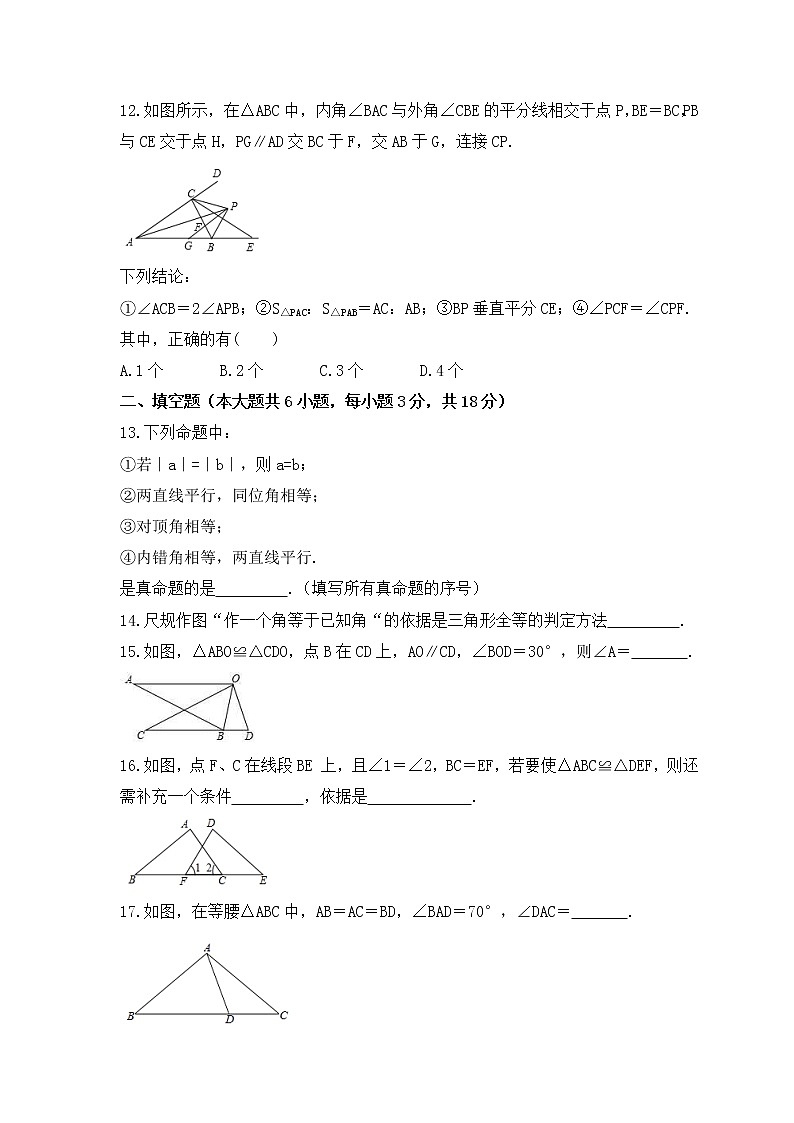 12.如图所示，在△ABC中，内角∠BAC与外角∠CBE的平分线相交于点P，BE＝BC，PB
与CE交于点H，PG∥AD交BC于F，交AB于G，连接CP.
D
C
P
F
A
G
B
E
下列结论：
①∠ACB＝2∠APB；②S△PAC：S△PAB＝AC：AB；③BP垂直平分CE；④∠PCF＝∠CPF.
其中，正确的有(　　)
A.1个　　B.2个　　C.3个　　D.4个
二、填空题（本大题共6小题，每小题3分，共18分）
13.下列命题中：
①若|a|=|b|，则a=b；
②两直线平行，同位角相等；
③对顶角相等；
④内错角相等，两直线平行.
是真命题的是_________.（填写所有真命题的序号）
14.尺规作图“作一个角等于已知角“的依据是三角形全等的判定方法_________.
15.如图，△ABO≌△CDO，点B在CD上，AO∥CD，∠BOD＝30°，则∠A＝_______.
A
O
C
B
D
16.如图，点F、C在线段BE上，且∠1＝∠2，BC＝EF，若要使△ABC≌△DEF，则还
需补充一个条件_________，依据是_____________.
A
D
1
2
B
F
C
E
17.如图，在等腰△ABC中，AB＝AC＝BD，∠BAD＝70°，∠DAC＝_______.
A
B
D
C